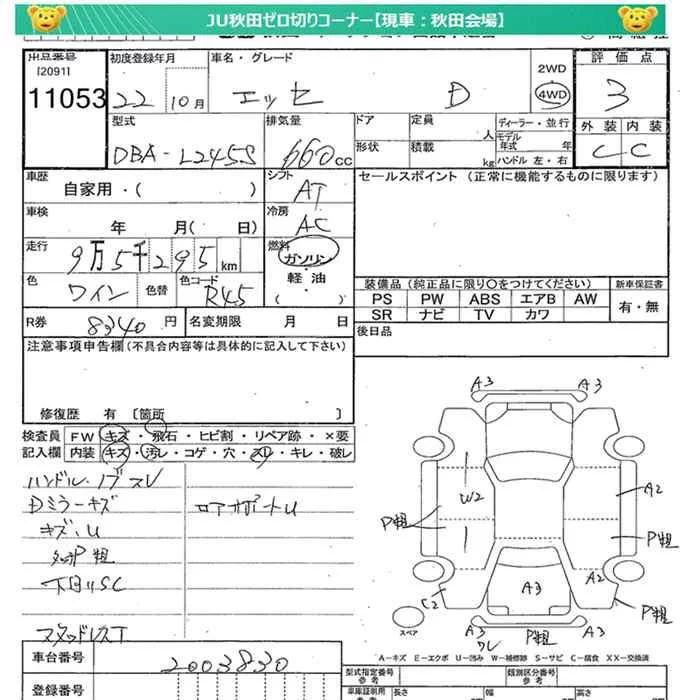 JU秋田ゼロ切りコーナー【現車：秋田会場】
出品番号
(2091)
11053
初度登録年月
22 10月
車名・グレード
エッセ D
2WD
4WD
評価点
3
外装 内装
C C
型式
DBA-L245S
排気量
660cc
ドア
形状
定員
人
積載
kg
ディーラー・並行
モデル
年式 年
ハンドル 左・右
車歴
自家用・( )
シフト
AT
セールスポイント (正常に機能するものに限ります)
車検
年 月( 日)
冷房
AC
走行
9万5千295km
燃料
ガソリン
軽油
( )
色
ワイン
色替
色コード
R45
装備品 (純正品に限り○をつけてください)
PS PW ABS エアB AW
SR ナビ TV カワ
新車保証書
有・無
R券 8340円
名変期限 月 日
後日品
注意事項申告欄(不具合内容等は具体的に記入して下さい)
修復歴 有 〔箇所 〕
検査員
記入欄
FW キズ・飛石・ヒビ割・リペア跡・×要
内装 キズ・汚レ・コゲ・穴・スレ・キレ・破レ
ハンドル・ノブスレ
Dミラーキズ
キズ、U
ロアサポートU
P粗
下回りSC
マタッドレスT
A3 A3
W2
A2
P粗
P粗
A3
A2
C2
P粗
A3 A3
ワレ
P粗
スペア
A-キズ E-エクボ U-凹み W-補修跡 S-サビ C-腐食 XX-交換済
車台番号
2003830
登録番号
型式指定番号
参考
類別区分番号
参考
車庫証明用
長さ
幅
高さ